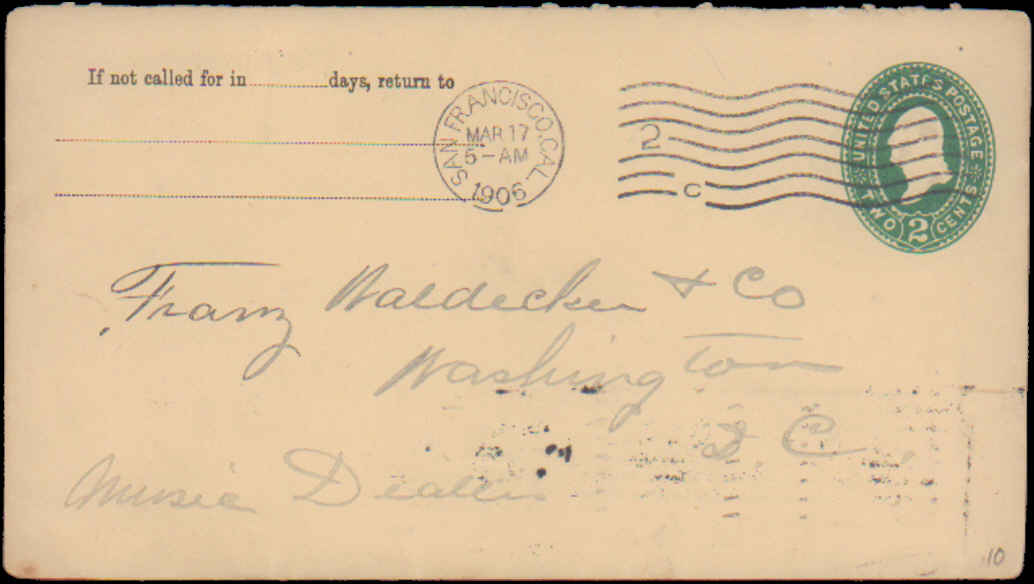 If not called for in ............ days, return to
SAN FRANCISCO, CAL.
MAR 17
5-AM
1906
2
C
UNITED STATES POSTAGE
TWO 2 CENTS
Franz Waldecker & Co
Washington
D. C.
Music Dealers
10